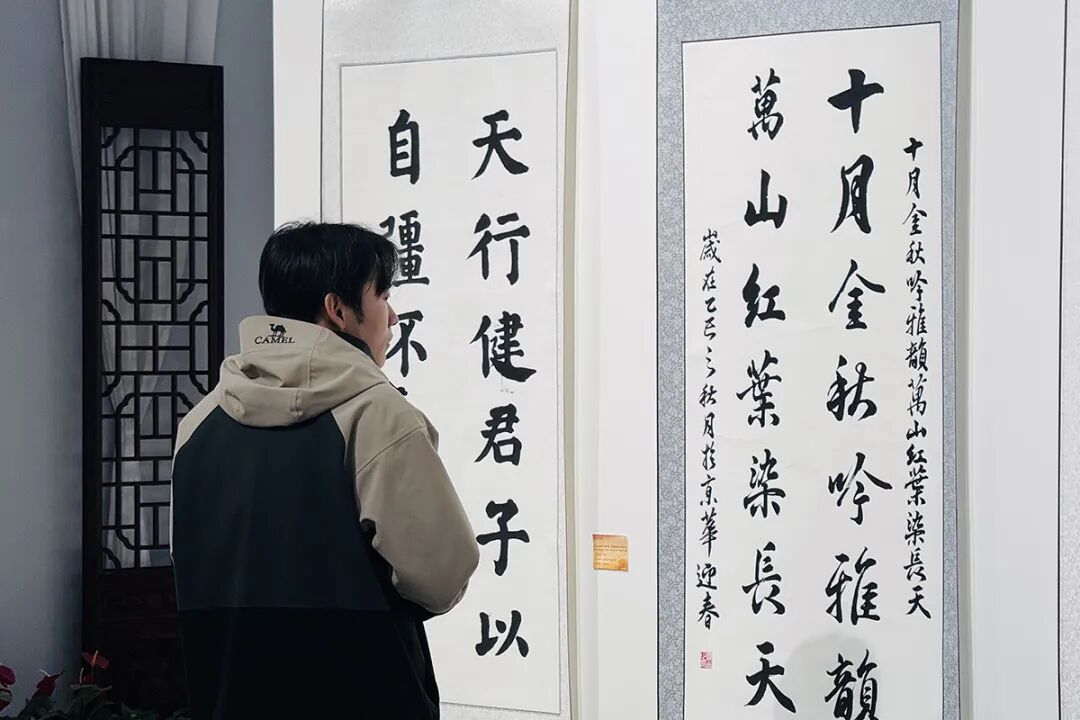 十月金秋吟雅韻萬山紅葉染長天
十月金秋吟雅韻
萬山紅葉染長天
歲在乙巳之秋月於京華迎春
天行健君子以
自彊不
CAMEL